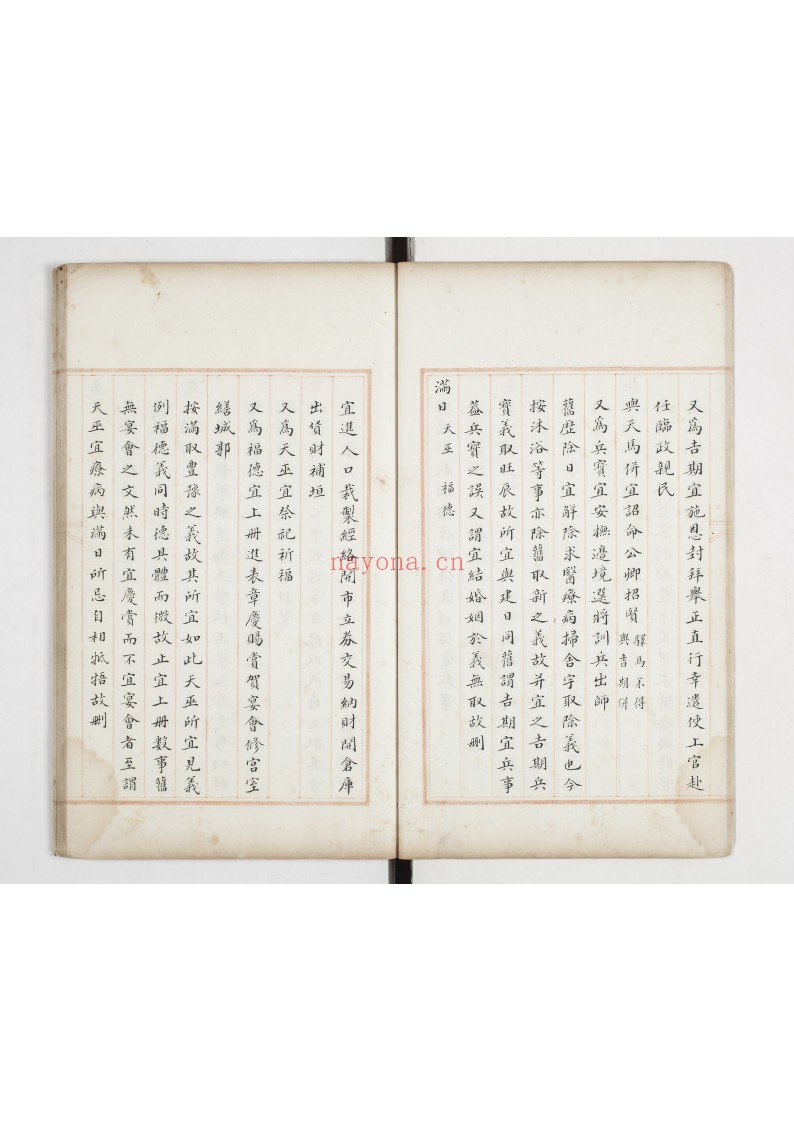 又為吉期宜施恩封拜舉正直行幸遣使上官赴
任臨政親民
與天馬併宜詔命公卿招賢 驛馬不得與吉期併
又為兵寶宜安撫邊境選將訓兵出師
舊歷除日宜解除求醫療病掃舍宇取除義也今
按沐浴等事亦除舊取新之義故并宜之吉期兵
寶義取旺辰故所宜與建日同舊謂吉期宜兵事
蓋兵寶之誤又謂宜結婚姻於義無取故刪
滿日 天巫 福德
宜進人口裁製經絡開市立券交易納財開倉庫
出貨財補垣
又為天巫宜祭祀祈福
又為福德宜上冊進表章慶賜賞賀宴會修宮室
繕城郭
按滿取豊豫之義故其所宜如此天巫所宜見義
例福德義同時德具體而微故止宜上冊數事舊
無宴會之文然未有宜慶賞而不宜宴會者至謂
天巫宜療病與滿日所忌自相牴牾故刪
nayona.cn